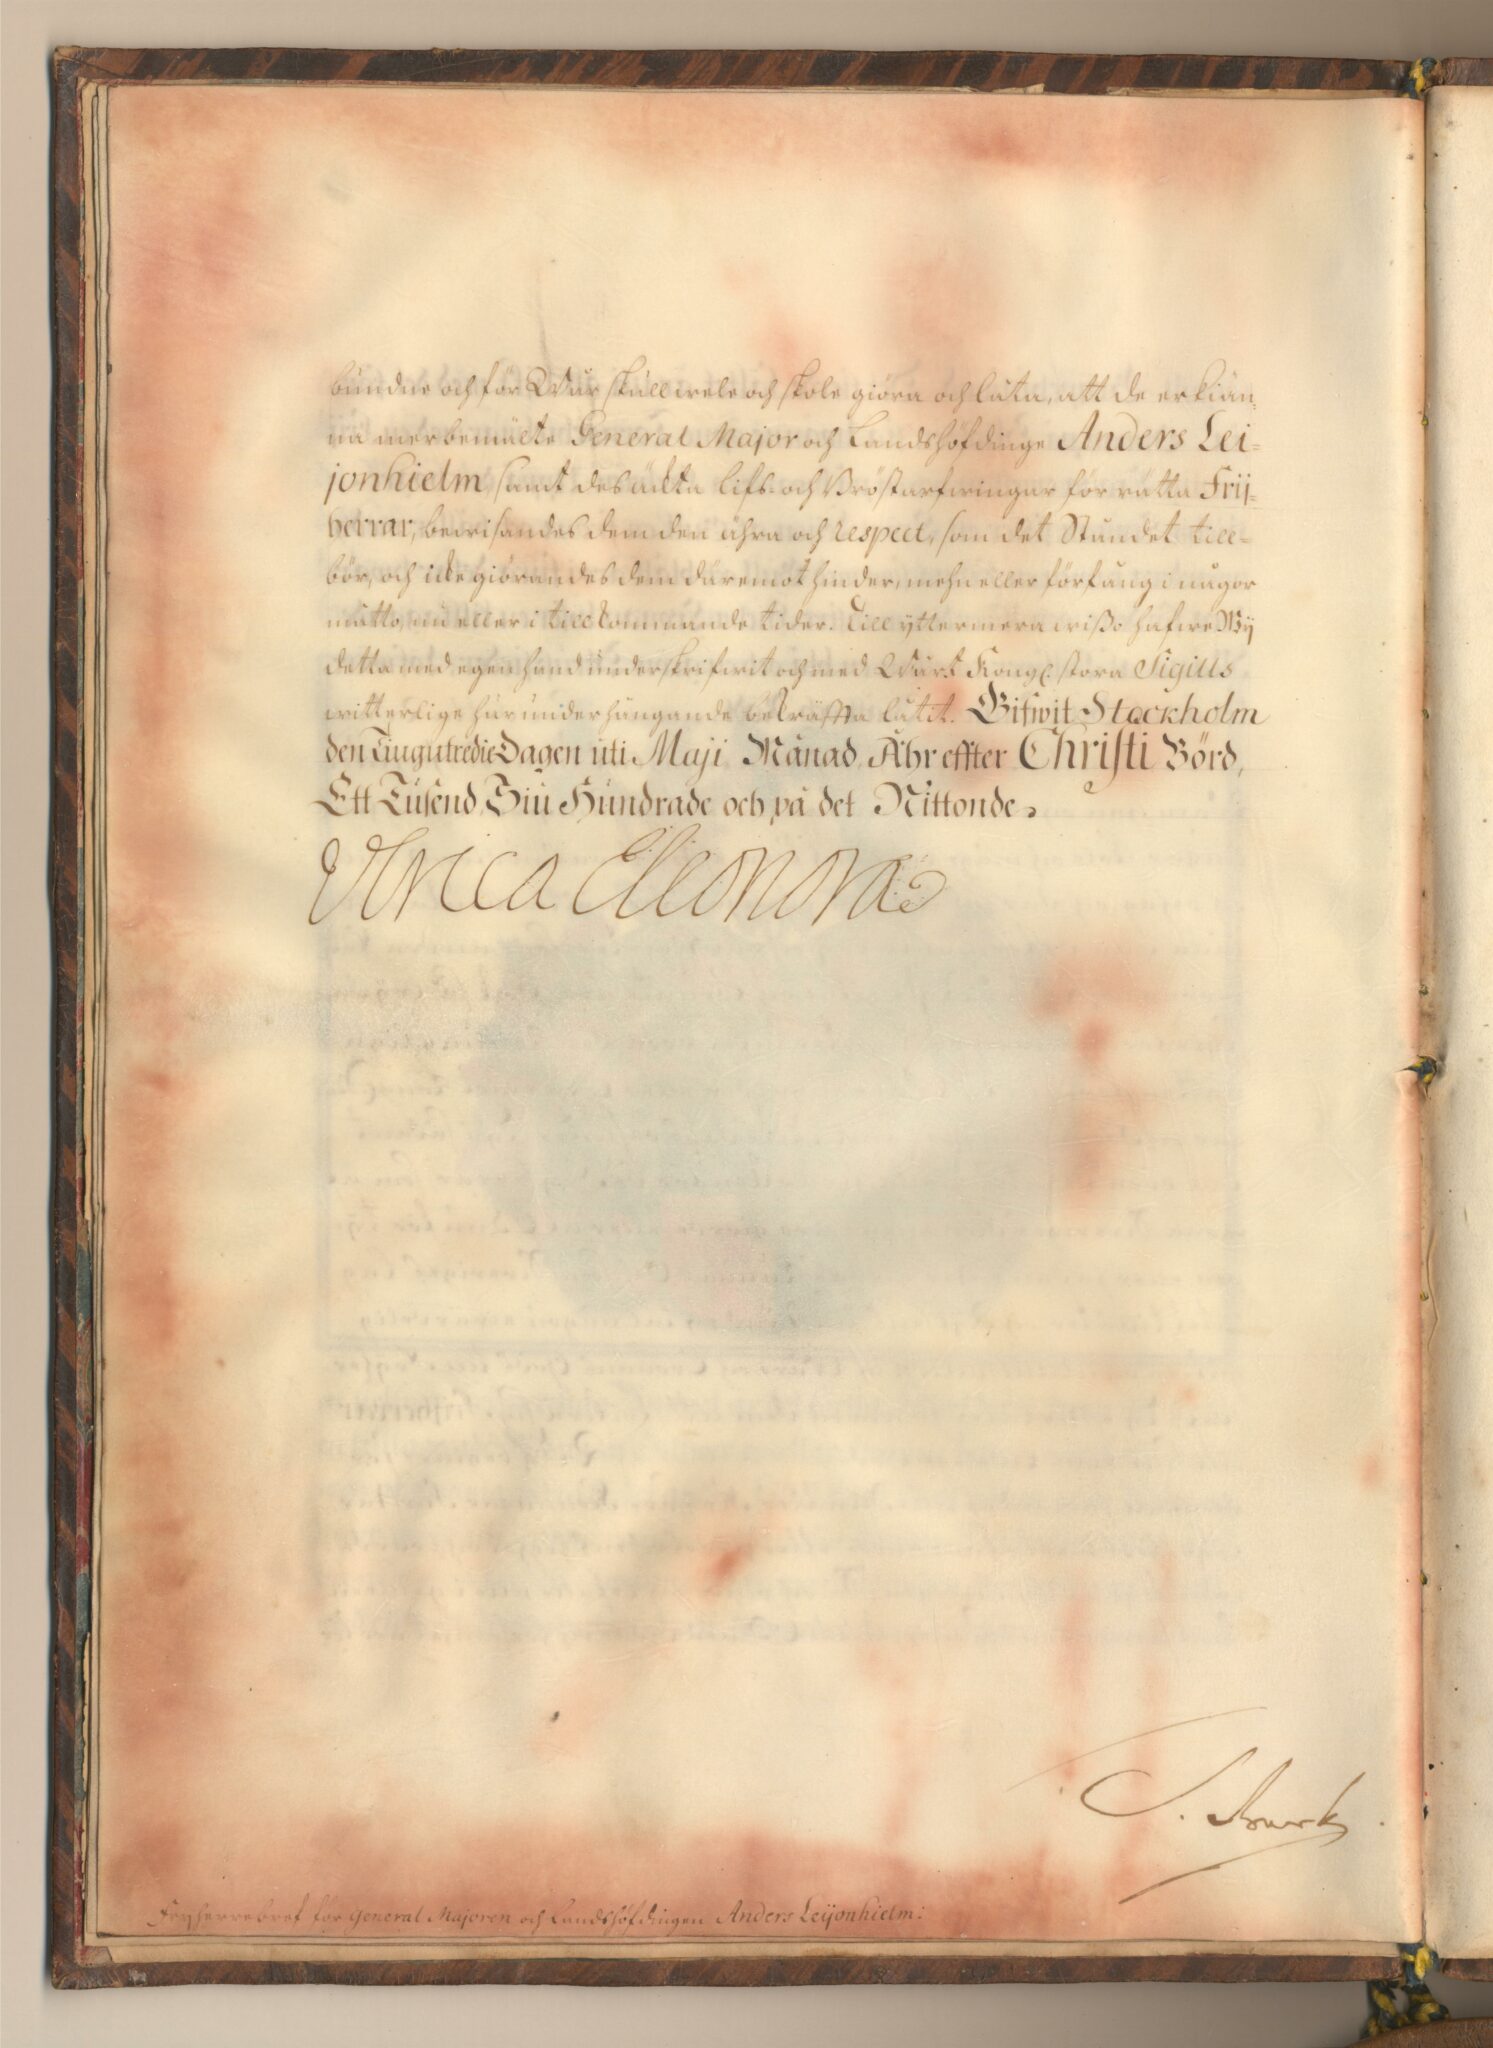 bundne och för Wår skull wele och skole giöra och låta, att de erkiän-
na merbemälte General Major och Landshöfdinge Anders Lei-
jonhielm, samt des äckta lifs- och Bröstarfwingar för rätta Frij-
herrar, bewisandes dem den ähra och respect, som det Ståndet till-
bör, och icke giörandes dem däremot hinder, mehn eller förfång i någor
måtto, nu eller i tillkommande tider. Till yttermera wißo hafwe Wij
detta med egen hand underskrifwit och med Wårt Kongl: stora Sigills
witterlige här underhängande bekräffta låtit. Gifwit Stockholm
den Tiugutredie Dagen uti Maji Månad, Åhr effter Christi Börd,
Ett Tusend, Siu Hundrade och på det Nittonde.
Ulrica Eleonora
Fryherrebref för General Majoren och Landshöfdingen Anders Leijonhielm: